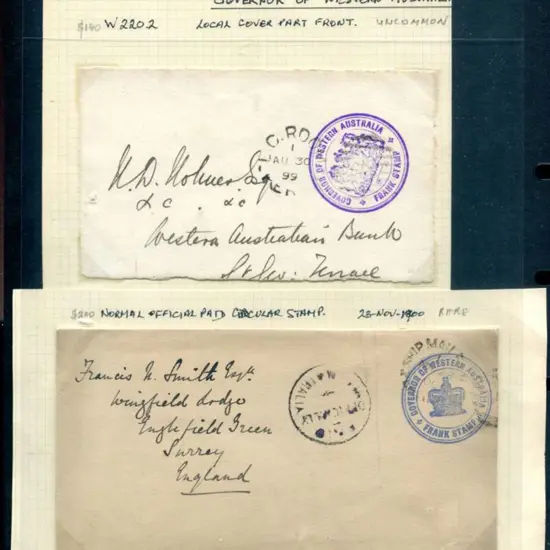 GOVERNOR OF WESTERN AUSTRALIA
$140 W2202 LOCAL COVER PART FRONT. UNCOMMON
GOVERNOR OF WESTERN AUSTRALIA
FRANK STAMP
1
JAU 30
99
Esq
&c. &c
Western Australian Bank
St Geo: Terrace
$200 NORMAL OFFICIAL PAID CIRCULAR STAMP. 23-NOV-1900 RARE
Francis N. Smith Esqr.
Wingfield Lodge
Englefield Green
Surrey
England
SHIP MAIL
GOVERNOR OF WESTERN AUSTRALIA
FRANK STAMP